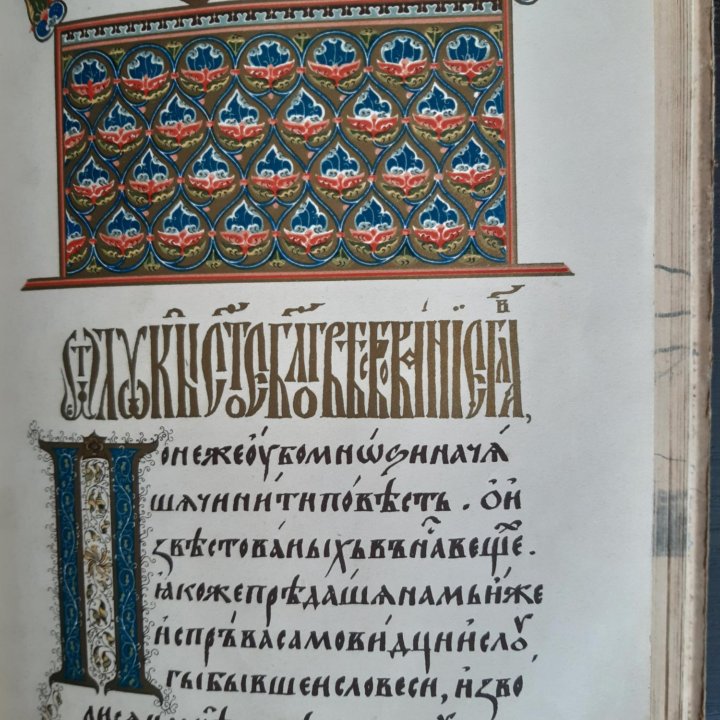 Ѿ лꙋкы ст҃ое бл҃говѣствованїе гл҃а в҃
Понежеоубомноѕиначѧ
шѧчинитиповѣсть . ѻи
звѣстованыхъвънⷭ҇авещеⷯ .
ꙗкожепрѣдашѧнамьиже
испръвасамовидцииислоу
гыбывшеисловеси, изво